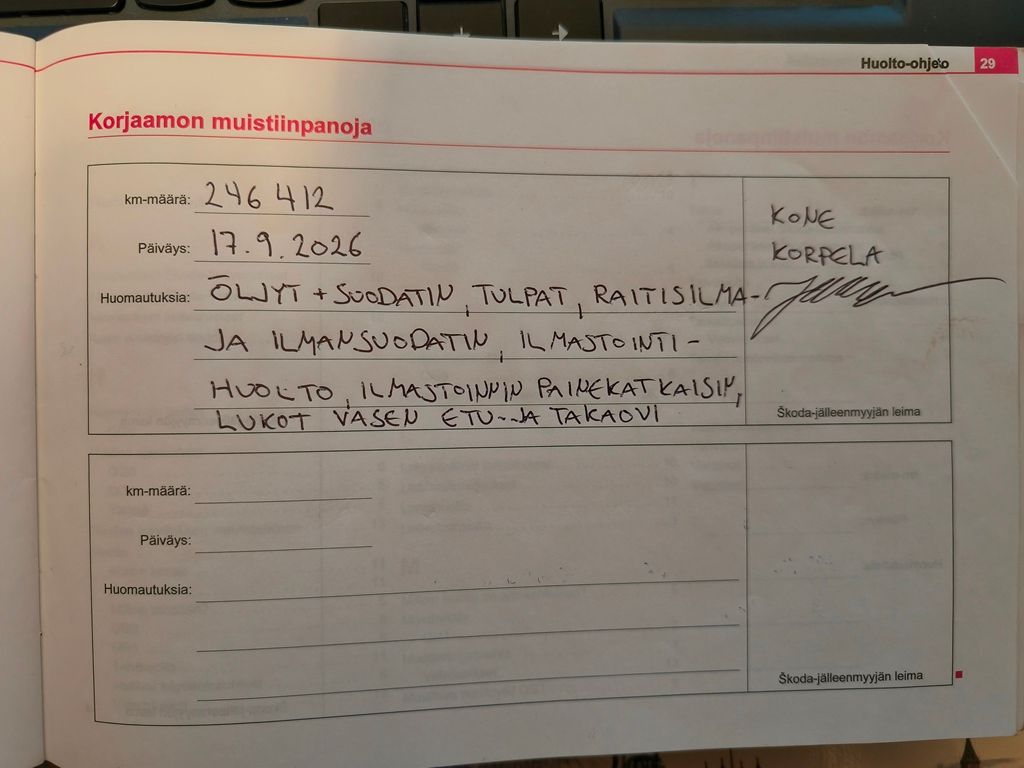 Huolto-ohje 29
Korjaamon muistiinpanoja
km-määrä: 246 412
Päiväys: 17.9.2026
Huomautuksia: ÖLJYT + SUODATIN, TULPAT, RAITISILMA-
JA ILMANSUODATIN, ILMASTOINTI-
HUOLTO, ILMASTOINNIN PAINEKATKAISIN,
LUKOT VASEN ETU- JA TAKAOVI
KONE
KORPELA
Škoda-jälleenmyyjän leima
km-määrä:
Päiväys:
Huomautuksia:
Škoda-jälleenmyyjän leima